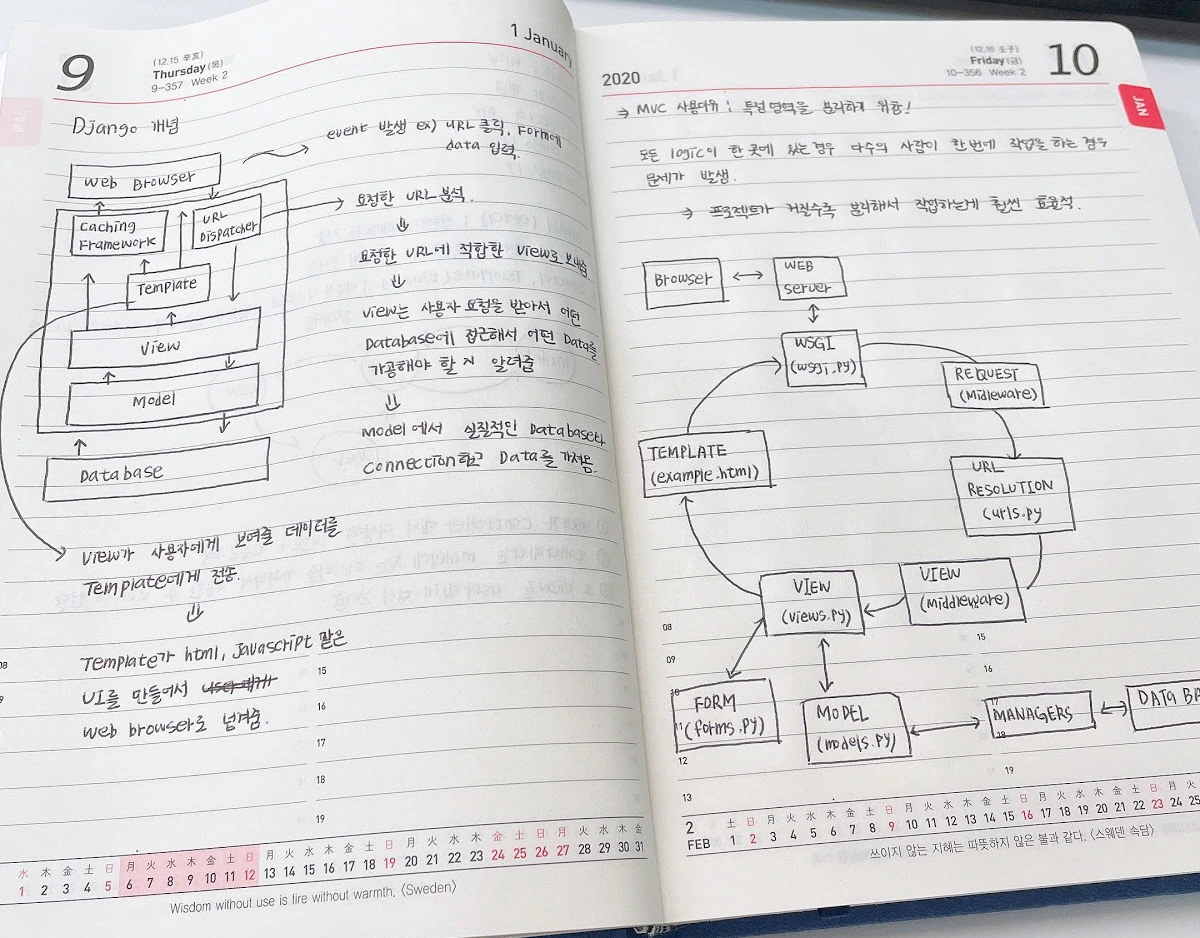 9
(12.15 辛亥)
Thursday (목)
9–357 Week 2
1 January
Django 개념
event 발생 ex) URL 클릭, Form에
data 입력.
Web Browser
Caching
Framework
URL
Dispatcher
Template
View
Model
Database
요청한 URL 분석.
⇓
요청한 URL에 적합한 View로 보내줌.
⇓
View는 사용자 요청을 받아서 어떤
Database에 접근해서 어떤 Data를
가공해야 할지 알려줌
⇓
Model에서 실질적인 Database와
Connection하고 Data를 가져옴.
View가 사용자에게 보여줄 데이터를
Template에게 전송.
⇓
Template가 html, Javascript 같은
UI를 만들어서
Web browser로 넘겨줌.
08
15
16
17
18
19
水 木 金 土 日 月 火 水 木 金 土 日 月 火 水 木 金 土 日 月 火 水 木 金 土 日 月 火 水 木 金
1 2 3 4 5 6 7 8 9 10 11 12 13 14 15 16 17 18 19 20 21 22 23 24 25 26 27 28 29 30 31
Wisdom without use is fire without warmth. 〈Sweden〉
2020
(12.16 壬子)
Friday (금)
10–356 Week 2
10
JAN
⇒ MVC 사용이유 : 특정 영역을 분리하기 위함!
모든 logic이 한 곳에 있는 경우 다수의 사람이 한번에 작업을 하는 경우
문제가 발생.
⇒ 프로젝트가 커질수록 분리해서 작업하는게 훨씬 효율적.
Browser
WEB
server
WSGI
(wsgi.py)
REQUEST
(Midleware)
TEMPLATE
(example.html)
URL
RESOLUTION
(urls.py
VIEW
(views.py)
VIEW
(middleware)
FORM
(forms.py)
MODEL
(models.py)
MANAGERS
DATA BA
08
09
10
11
12
13
15
16
17
18
19
2
FEB
土 日 月 火 水 木 金 土 日 月 火 水 木 金 土 日 月 火 水 木 金 土 日 月 火
1 2 3 4 5 6 7 8 9 10 11 12 13 14 15 16 17 18 19 20 21 22 23 24 25
쓰이지 않는 지혜는 따뜻하지 않은 불과 같다. 〈스웨덴 속담〉